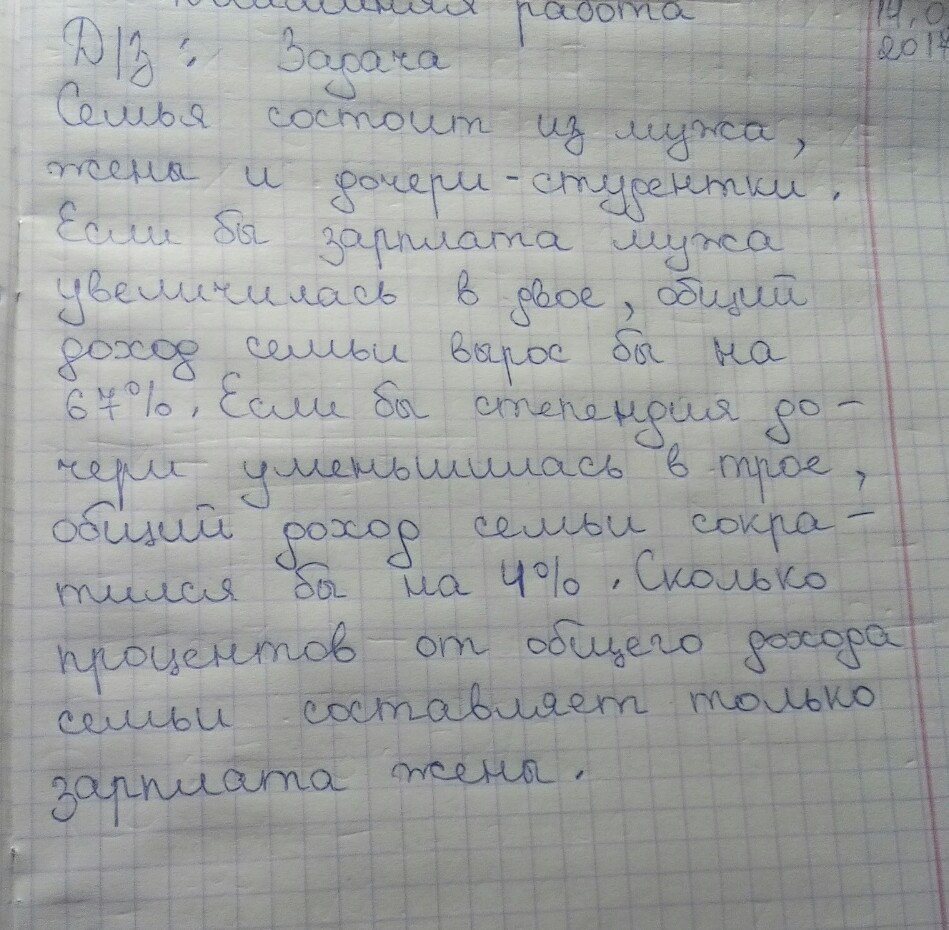 работа
Д/З: Задача
Семья состоит из мужа,
жены и дочери-студентки.
Если бы зарплата мужа
увеличилась в двое, общий
доход семьи вырос бы на
67%. Если бы степендия до-
чери уменьшилась в трое,
общий доход семьи сокра-
тился бы на 4%. Сколько
процентов от общего дохода
семьи составляет только
зарплата жены.